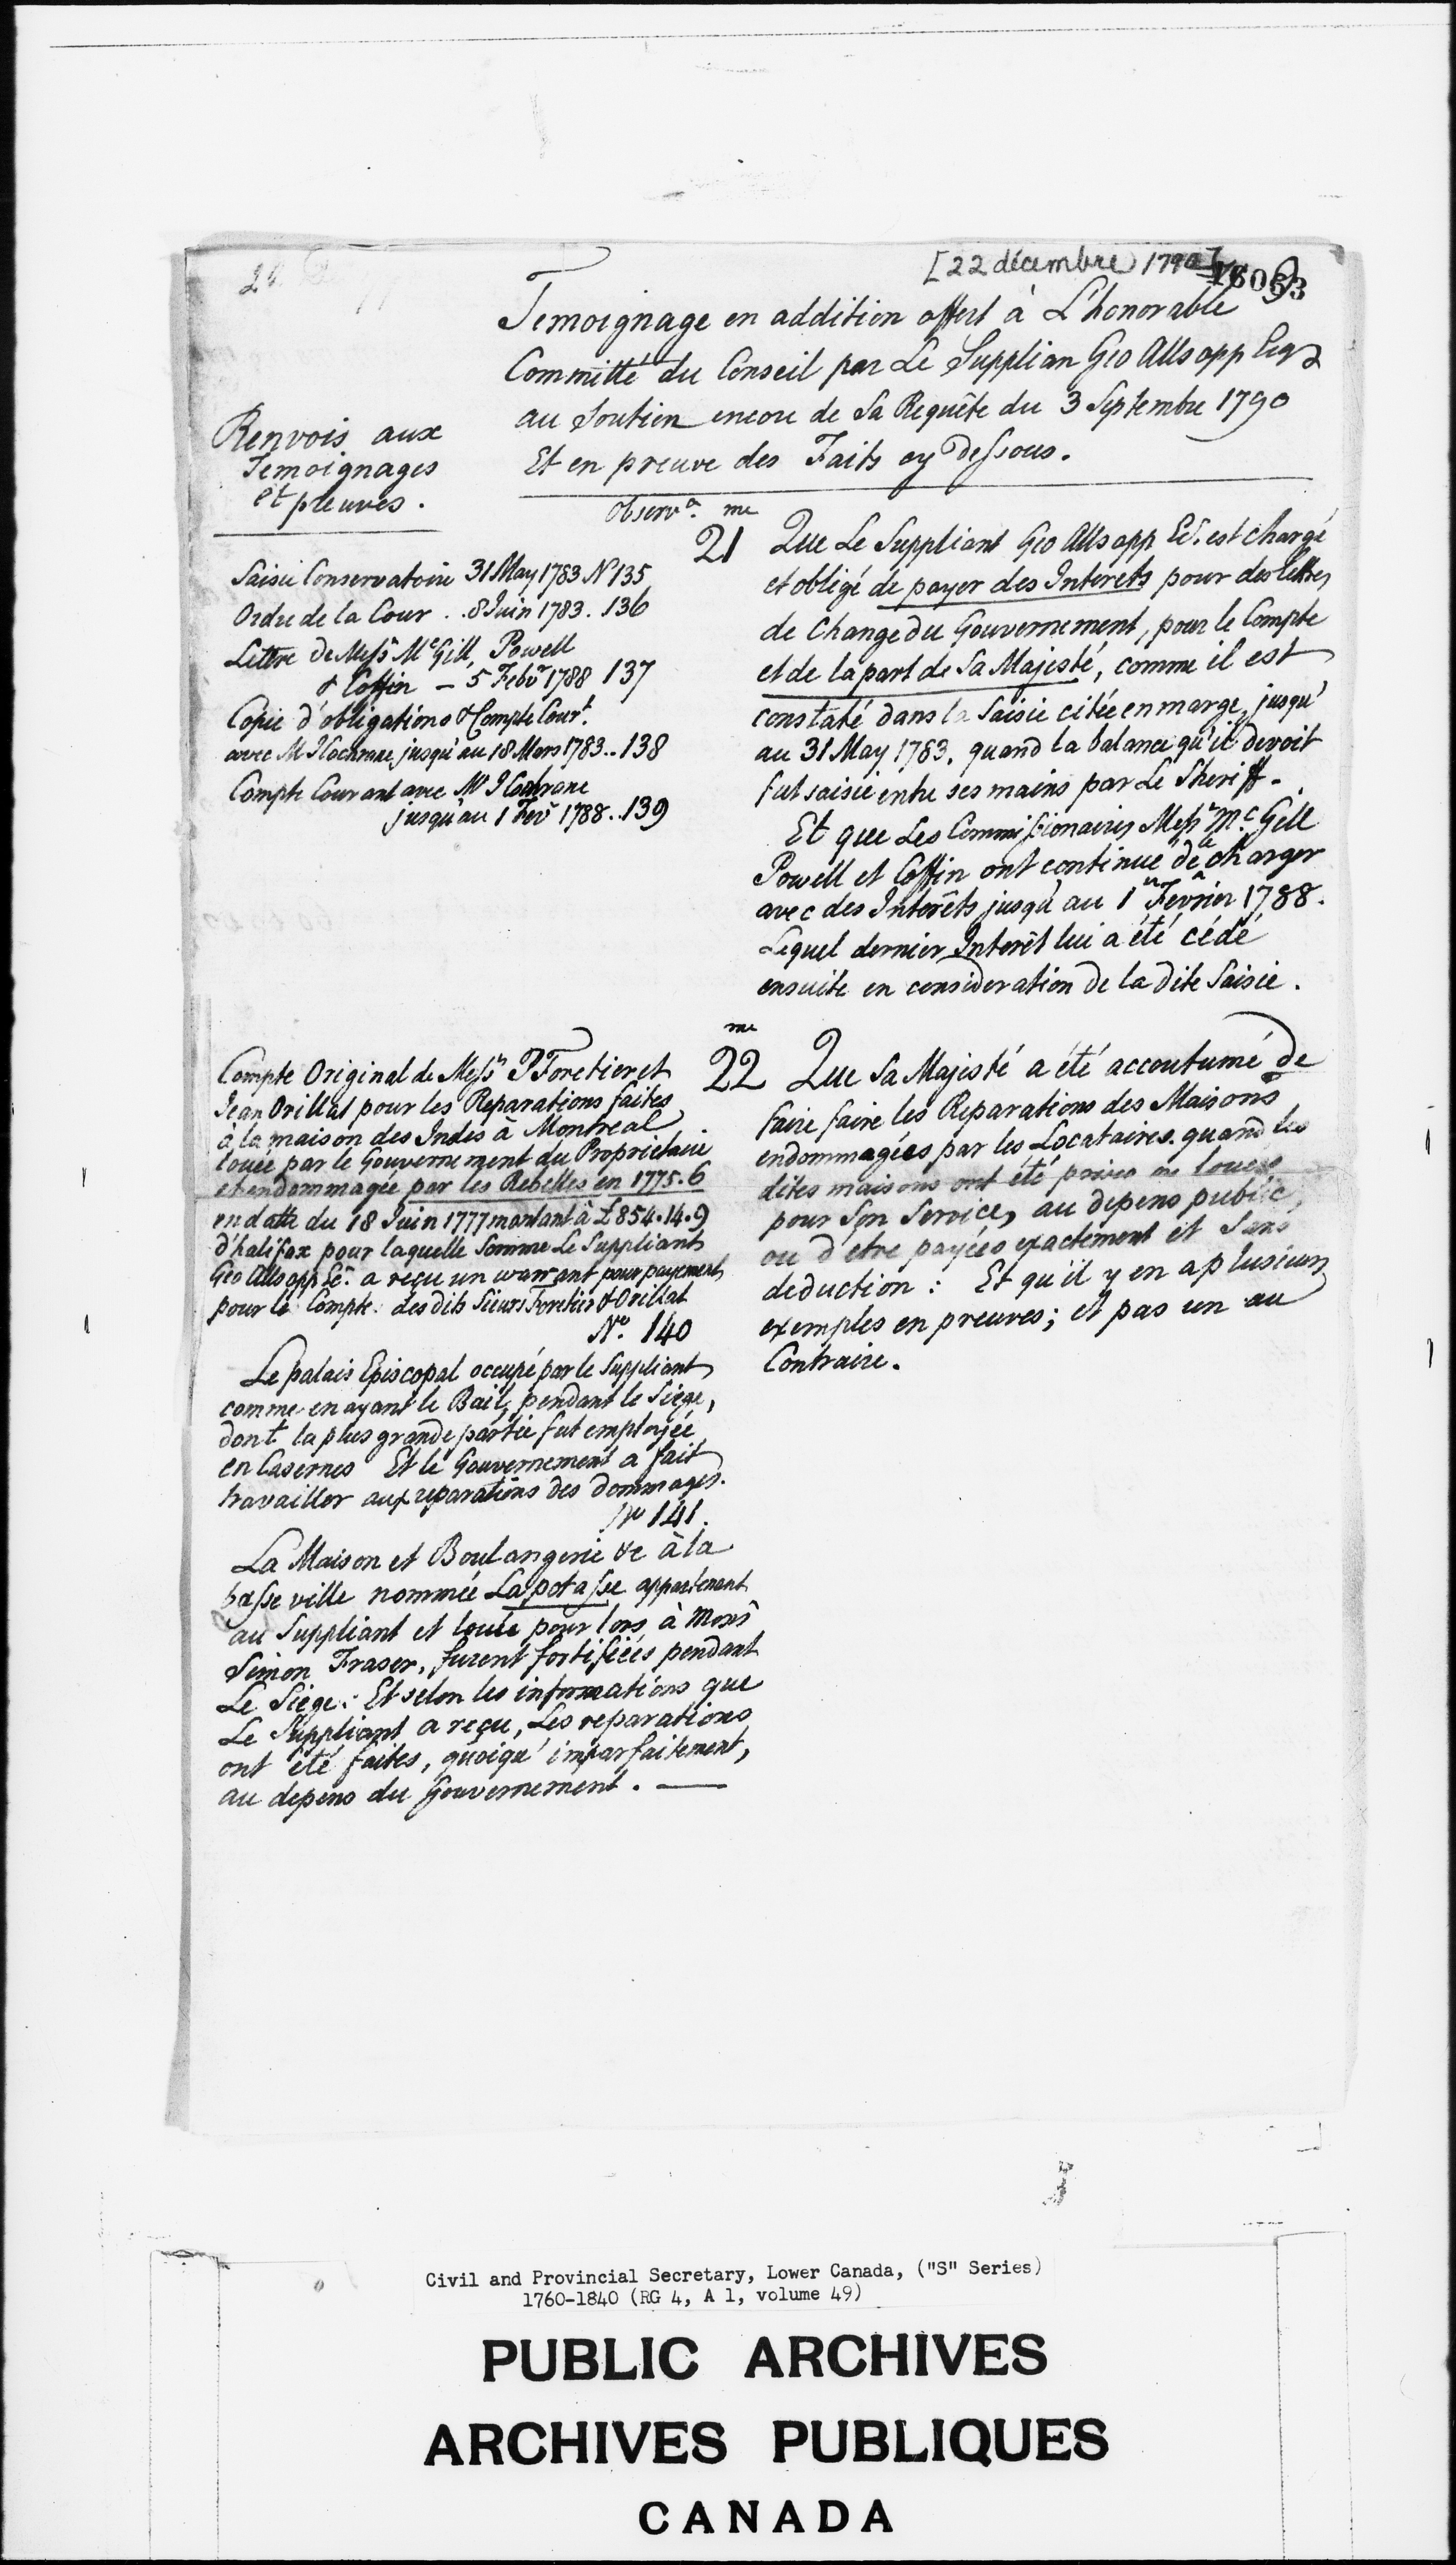 [22 décembre 1790]
Temoignage en addition offert à L'honorable
Committé du Conseil par Le Supplian Geo Allsopp Eqr
au soutien encore de Sa Requête du 3 Septembre 1790
Et en preuve des Faits cy Dessous.
Renvois aux
Temoignages
et preuves.
Observn.
21me Que Le Suppliant Geo Allsopp Ec. est chargé
et obligé de payer des Interets pour des lettres
de Change du Gouvernement, pour le Compte
et de la part de Sa Majesté, comme il est
constaté dans la Saisie citée en marge, jusqu'
au 31 May 1783, quand la balance qu'il devoit
fut saisie entre ses mains par Le Sheriff.
Et que Les Commissionaires Messrs McGill
Powell et Coffin ont continué de le charger
avec des Interêts jusqu'au 1er Fevrier 1788.
Lequel dernier Interêt lui a été cédé
ensuite en consideration de la dite Saisie.
Saisie Conservatoire 31 May 1783 No 135
Ordre de la Cour .. 8 Juin 1783. 136
Lettre de Messrs McGill, Powell
& Coffin – 5 Febr 1788 137
Copie d'obligations & Compte Court.
avec Mr J Cochrane jusqu'au 18 Mars 1783.. 138
Compte Courant avec Mr J Cochrane
jusqu'au 1 Fevr 1788.. 139
22me Que Sa Majesté a été accoutumé de
faire faire les Reparations des Maisons
endommagées par les Locataires quand les
dites maisons ont été prises ou louées
pour Son Service, au depens public,
ou d'etre payées exactement et sans
deduction : Et qu'il y en a plusieurs
exemples en preuves; et pas un au
Contraire.
Compte Original de Messrs P Foretier et
Jean Orillat pour les Reparations faites
à la maison des Indes à Montreal
louée par le Gouvernement du Proprietaire
et endommagée par les Rebelles en 1775.6
en datte du 18 Juin 1777 montant à £854.14.9
d'halifax pour laquelle Somme Le Suppliant
Geo Allsopp Ecr. a reçu un warrant pour payement
pour le Compte des dits Sieurs Foretier & Orillat
No. 140
Le palais Episcopal occupé par le Suppliant
comme en ayant le Bail, pendant le Siège,
dont la plus grande partie fut employée
en Casernes Et le Gouvernement a fait
travailler aux reparations des dommages.
No 141.
La Maison et Boulangerie &c à la
basse ville nommée La potasse appartenant
au Suppliant et louée pour lors à Monsr
Simon Fraser, furent fortifiées pendant
Le Siège: Et selon les informations que
Le Suppliant a reçu, Les reparations
ont été faites, quoiqu' imparfaitement,
au depens du Gouvernement. —
Civil and Provincial Secretary, Lower Canada, ("S" Series)
1760-1840 (RG 4, A 1, volume 49)
PUBLIC ARCHIVES
ARCHIVES PUBLIQUES
CANADA